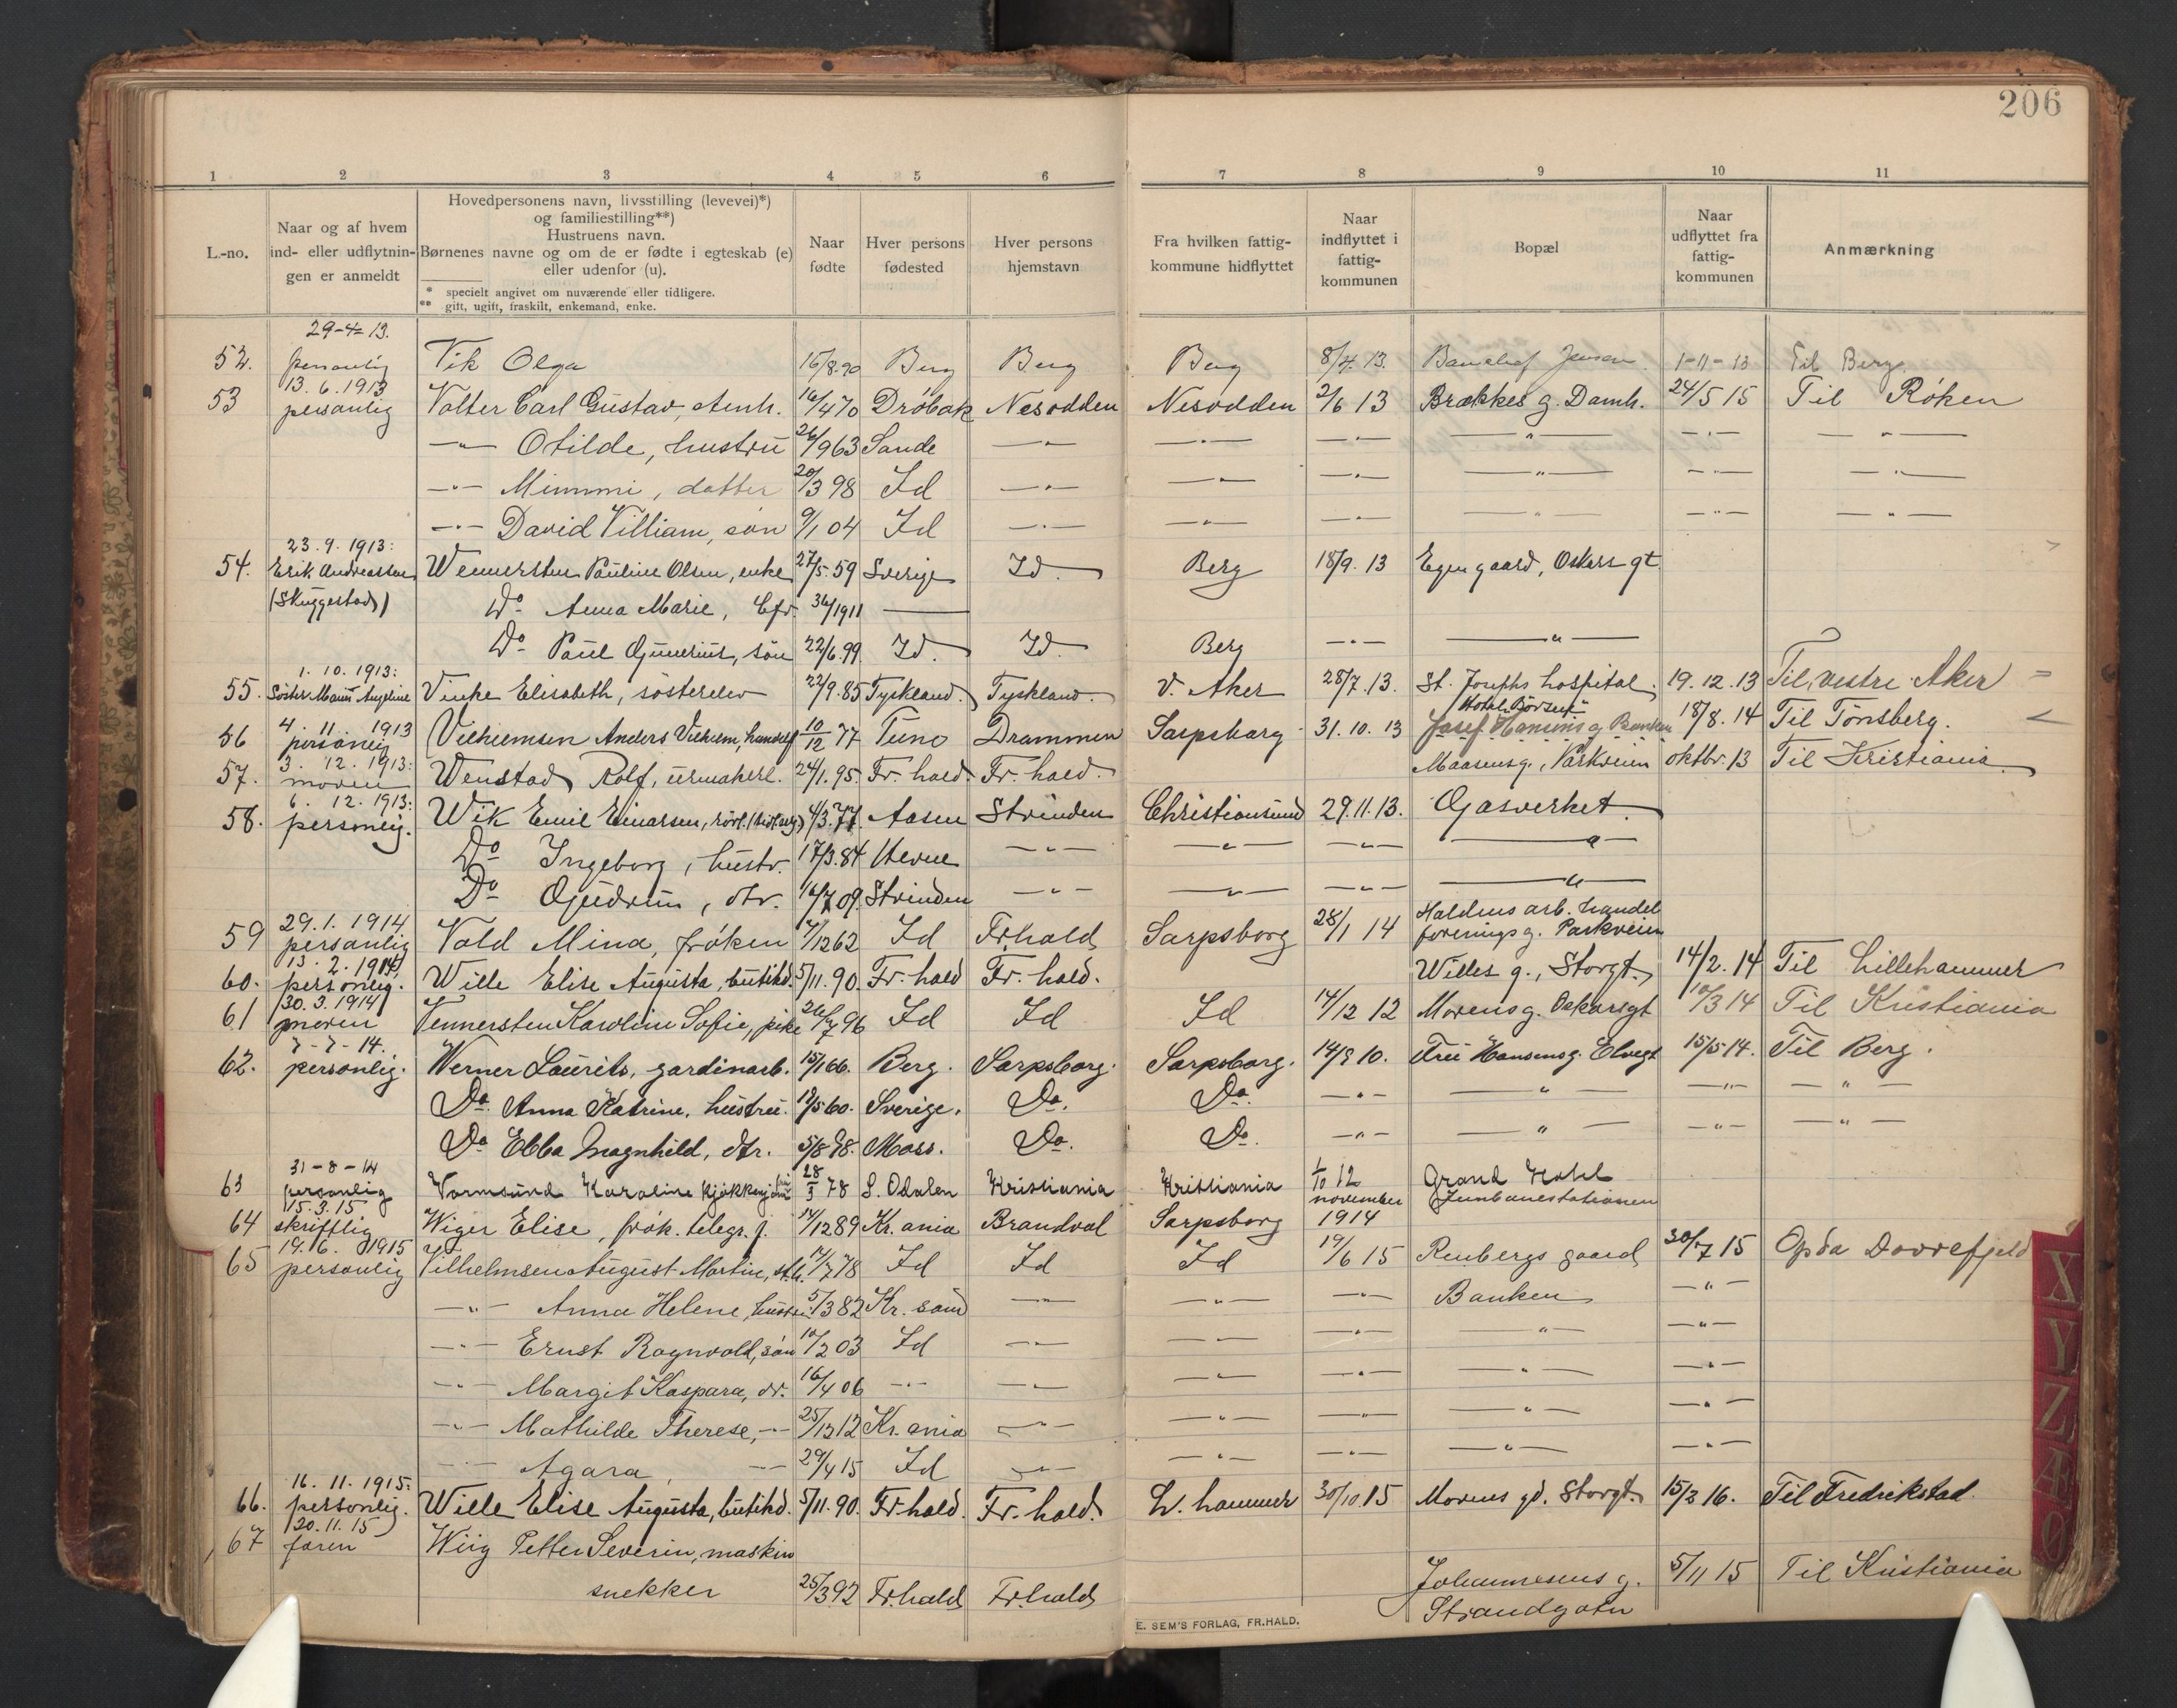 206
1 2 3 4 5 6 7 8 9 10 11
L.-no.
Naar og af hvem
ind- eller udflytnin-
gen er anmeldt
Hovedpersonens navn, livsstilling (levevei)*)
og familiestilling**)
Hustruens navn.
Børnenes navne og om de er fødte i egteskab (e)
eller udenfor (u).
* specielt angivet om nuværende eller tidligere.
** gift, ugift, fraskilt, enkemand, enke.
Naar
fødte
Hver persons
fødested
Hver persons
hjemstavn
Fra hvilken fattig-
kommune hidflyttet
Naar
indflyttet i
fattig-
kommunen
Bopæl
Naar
udflyttet fra
fattig-
kommunen
Anmærkning
29-4-13.
52. personlig Vik Olga 15/8.90 Berg Berg Berg 8/4.13. Jensen 1-11-13 Til Berg
13.6.1913
53 personlig Valter Carl Gustav, 16/4 70 Drøbak Nesodden Nesodden 2/6 13 Brækkes g. Damh. 24/5 15 Til Røken
—"— Otilde, hustru 26/9 63 Sande —"— —"— —"— —"— —"— —"—
—"— Mimmi, datter 20/3 98 Id —"— —"— —"— —"— —"— —"—
—"— David Villiam, søn 9/1 04 Id —"— —"— —"— —"— —"— —"—
23.9.1913:
54. Erik Andreassen Wennersten Pauline Olsen, enke 27/5.59 Sverige Id. Berg 18/9.13 Egen gaard, Oskars gt.
(Skuggestad) Do Anna Marie, 1911 ——
Do Paul Gunerius, søn 22/6.99. Id. Id. Berg —"— —"—
1.10.1913:
55. Søster Maria Angeline Vinke Elisabeth, søsterelev 22/9.85 Tyskland. Tyskland. V. Aker 28/7.13. St. Josephs hospital. 19.12.13 Til vestre Aker
4. 11. 1913 "Hotel Børsen"
56 personlig Vilhelmsen Anders Vilhelm, 10/12 77 Tune Drammen Sarpsborg 31.10.13 Josef Hansens g. Banken 18/8.14 Til Tønsberg.
3. 12. 1913:
57. moren Wenstad Rolf, urmakerl. 24/1.95. Fr.hald. Fr.hald. Maasensg., Parkveien oktbr. 13 Til Kristiania
6. 12. 1913:
58. personlig. Wik Emil Einarsen, 4/3.77. Aasen Strinden Christiansund 29.11.13. Gasverket.
Do Ingeborg, hustr. 17/3.84 Hevne —"— —"— —"— —"—
Do Gudrun, dtr. 16/7 09. Strinden —"— —"— —"— —"—
29.1.1914
59 personlig Vold Mina, frøken 7/12 62 Id Fr.hald Sarpsborg 28/1 14 Haldens arb. handel
forenings g. Parkveien
13.2.1914
60. personlig. Wille Elise Augusta, butikd. 5/11.90. Fr.hald Fr.hald. Willes g., Storgt. 14/2.14 Til Lillehammer
30.3.1914
61 moren Vennersten Karoline Sofie, pike 26/7 96 Id Id Id 14/12 12 Morens g. Oskarsgt 10/3 14 Til Kristiania
7-7-14.
62. personlig. Werner Laurits, gardinarb. 15/1 66. Berg. Sarpsborg. Sarpsborg. 14/9 10. Fru Hansens g. Elvegt 15/5 14. Til Berg.
Do Anna Katrine, hustru. 12/5 60. Sverige. Do. Do. —"— —"— —"— —"—
Do Ebba Magnhild, dtr. 5/8 98. Moss. Do. Do. —"— —"— —"— —"—
31-8-14
63 personlig Vormsund Karoline 28/3 78 S. Odalen Kristiania Kristiania 1/10 12 Grand Hotel
15.3.15 november Jernbanestationen
64 skriftlig Wiger Elise, frøk. telegr. f. 14/12 89 Kr.ania Brandval Sarpsborg 1914
19.6. 1915
65 personlig Vilhelmsen August Martin, 17/7 78 Id Id Id 19/6 15 Renbergs gaard 30/7 15 Opda Dovrefjeld
—"— Anna Helene, hustru 5/3 82 Kr.sand —"— —"— —"— Banken —"—
—"— Ernst Ragnvald, søn 10/2 03 Id —"— —"— —"— —"— —"—
—"— Margit Kaspara, dr. 16/4 06 —"— —"— —"— —"— —"— —"—
—"— Mathilde Therese, —"— 25/12 12 Kr.ania —"— —"— —"— —"— —"—
—"— Agara, —"— 29/4 15 Id —"— —"— —"— —"— —"—
16. 11. 1915:
66. personlig. Wille Elise Augusta, butikd. 5/11.90. Fr.hald. Fr.hald. L.hammer 30/10.15 Morens gd. Storgt. 15/2 16. Til Fredrikstad.
20.11.15
67 faren Wiig Petter Severin, maskin
snekker 25/3 92 Fr.hald Fr.hald Johannesens g. 5/11 15 Til Kristiania
Strandgaten
E. SEM'S FORLAG, FR.HALD.
X
Y
Z
Æ
Ø